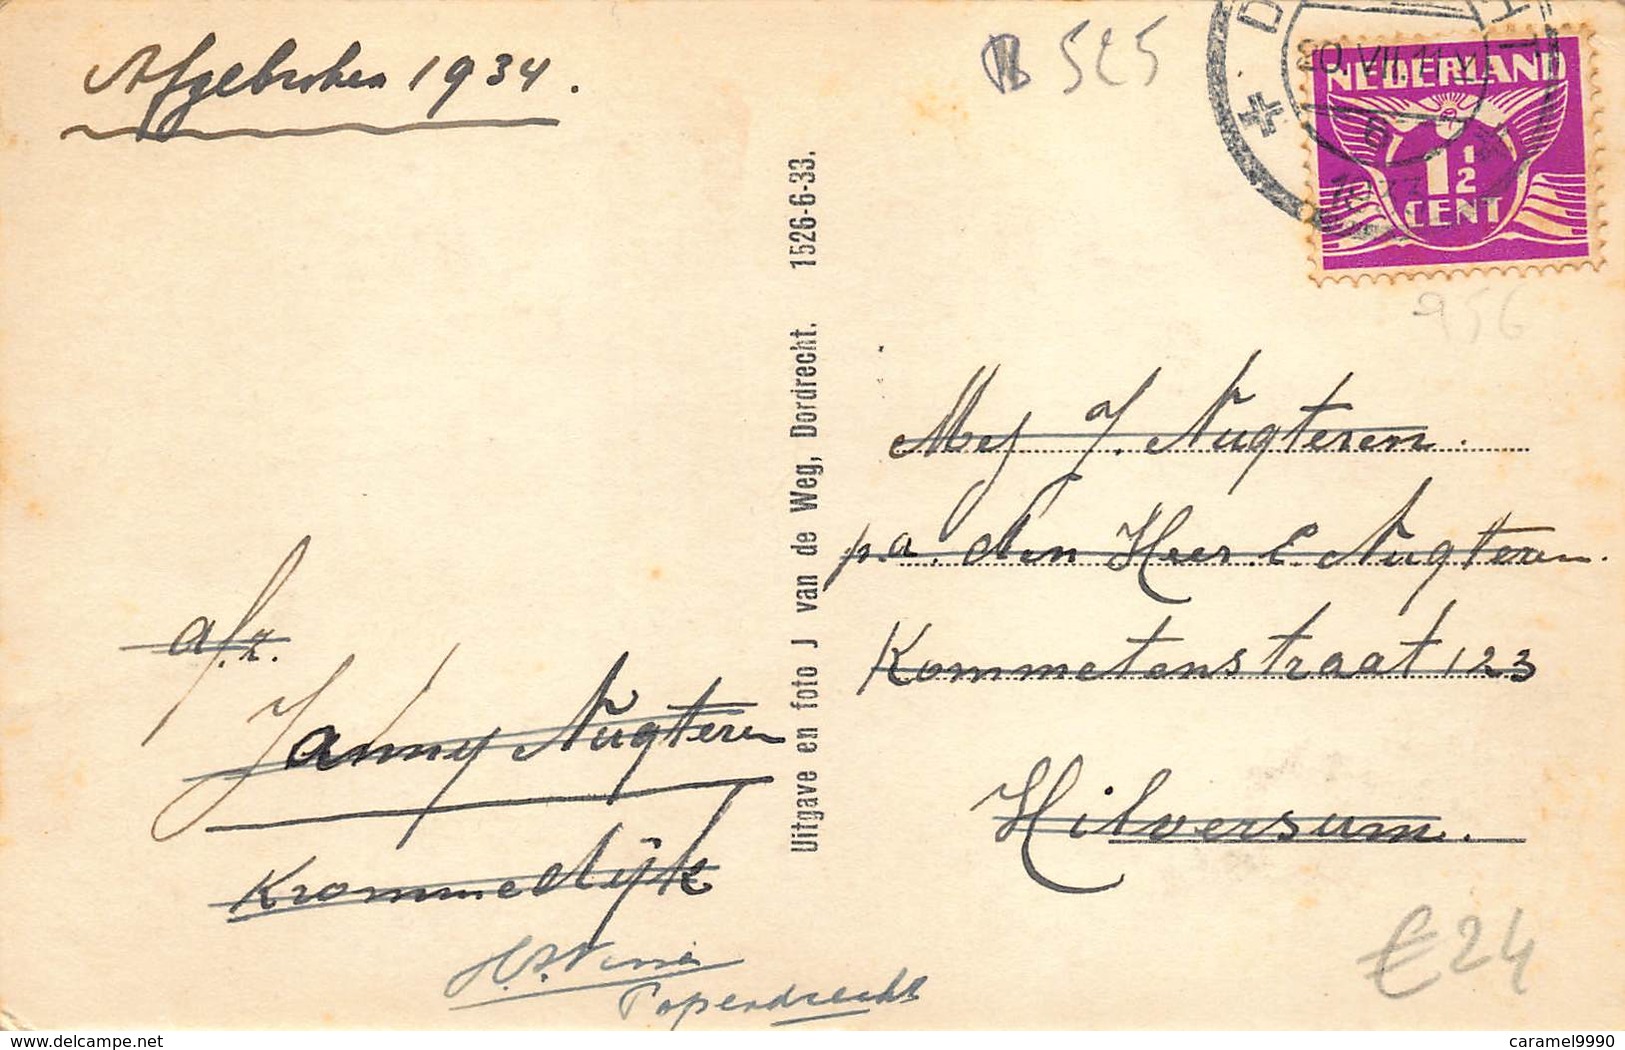 Afgebroken 1934.
B 525
20.VII.11 V
h
1933
NEDERLAND
1 1/2
CENT
956
Uitgave en foto J van de Weg, Dordrecht. 1526-6-33.
Mej J. Nugteren.
pa. den Heer. C. Nugteren.
Kommetenstraat 123
Hilversum.
afz.
Janny Nugteren
Krommedijk
Papendrecht
€24
www.delcampe.net
caramel9990